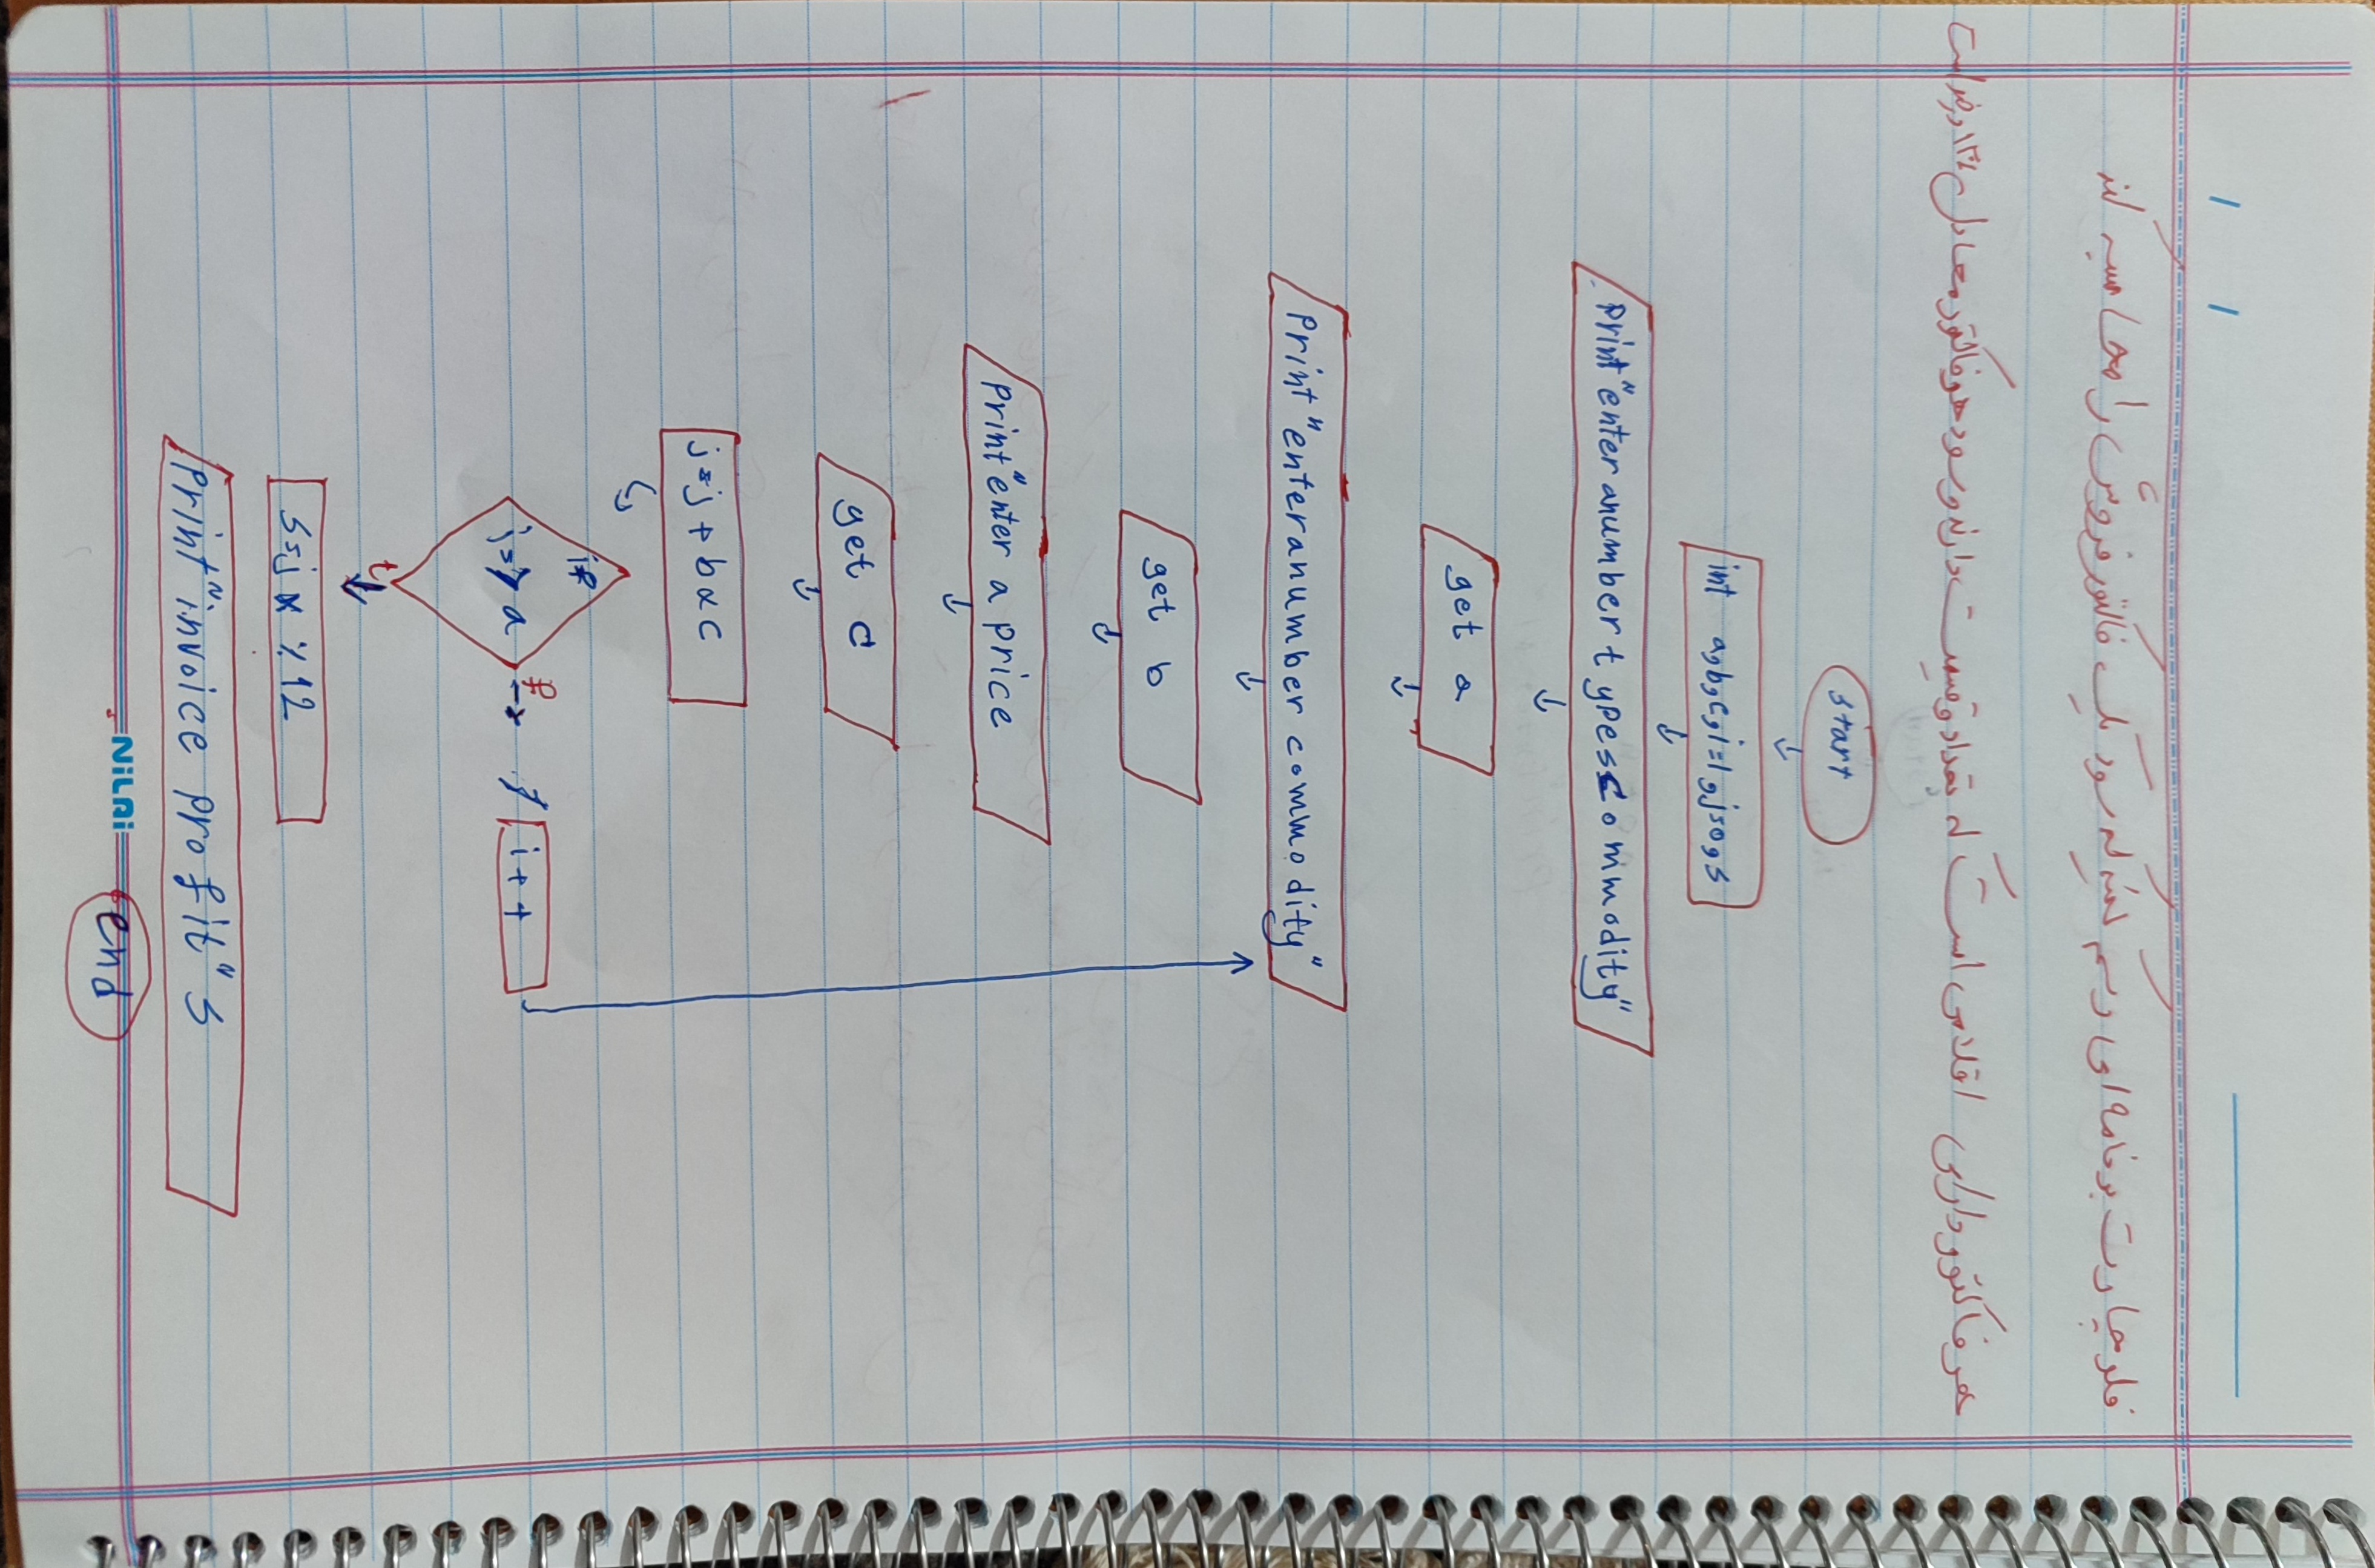 فلوچارت برنامه ای رسم کنید که سود یک فاکتور فروش را محاسبه کند
هر فاکتور دارای اقلامی است که تعداد و قیمت دارند و سود هر فاکتور معادل ۱۲٪ در نظر است
start
int a,b,c,i=1,j=0,s
print "enter a number types commodity"
get a
print "enter a number commodity"
get b
print "enter a price
get c
j=j + b x c
if
i=> a
f
i++
t
s=j x %12
print "invoice profit" s
end
NiLRi